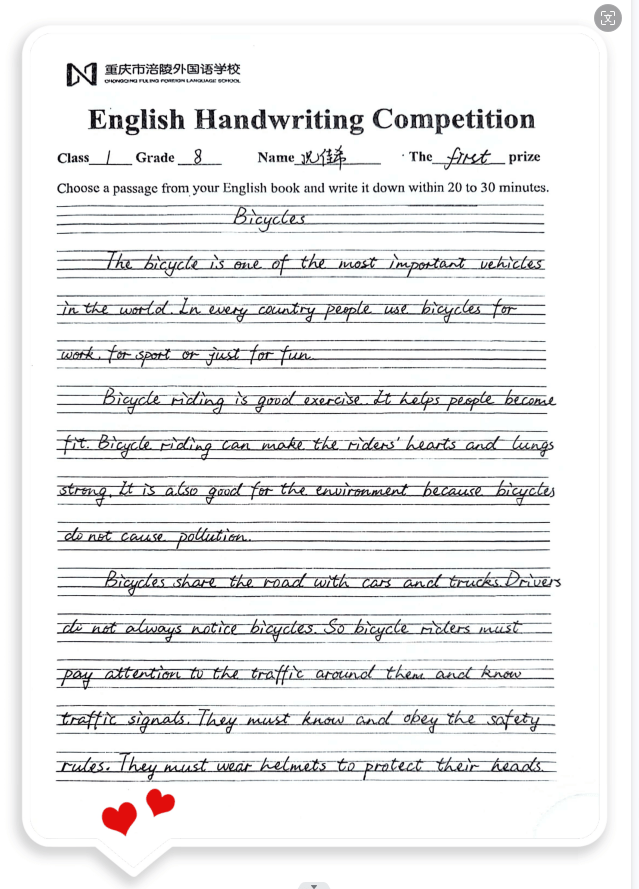 重庆市涪陵外国语学校
CHONGQING FULING FOREIGN LANGUAGE SCHOOL
English Handwriting Competition
Class 1 Grade 8 Name The first prize
Choose a passage from your English book and write it down within 20 to 30 minutes.
Bicycles
The bicycle is one of the most important vehicles
in the world. In every country people use bicycles for
work, for sport or just for fun.
Bicycle riding is good exercise. It helps people become
fit. Bicycle riding can make the riders' hearts and lungs
strong. It is also good for the environment because bicycles
do not cause pollution.
Bicycles share the road with cars and trucks. Drivers
do not always notice bicycles. So bicycle riders must
pay attention to the traffic around them and know
traffic signals. They must know and obey the safety
rules. They must wear helmets to protect their heads.